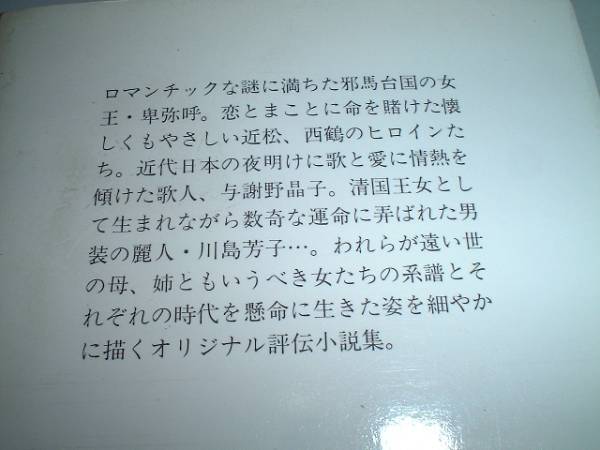 ロマンチックな謎に満ちた邪馬台国の女
王・卑弥呼。恋とまことに命を賭けた懐
しくもやさしい近松、西鶴のヒロインた
ち。近代日本の夜明けに歌と愛に情熱を
傾けた歌人、与謝野晶子。清国王女とし
て生まれながら数奇な運命に弄ばれた男
装の麗人・川島芳子…。われらが遠い世
の母、姉ともいうべき女たちの系譜とそ
れぞれの時代を懸命に生きた姿を細やか
に描くオリジナル評伝小説集。